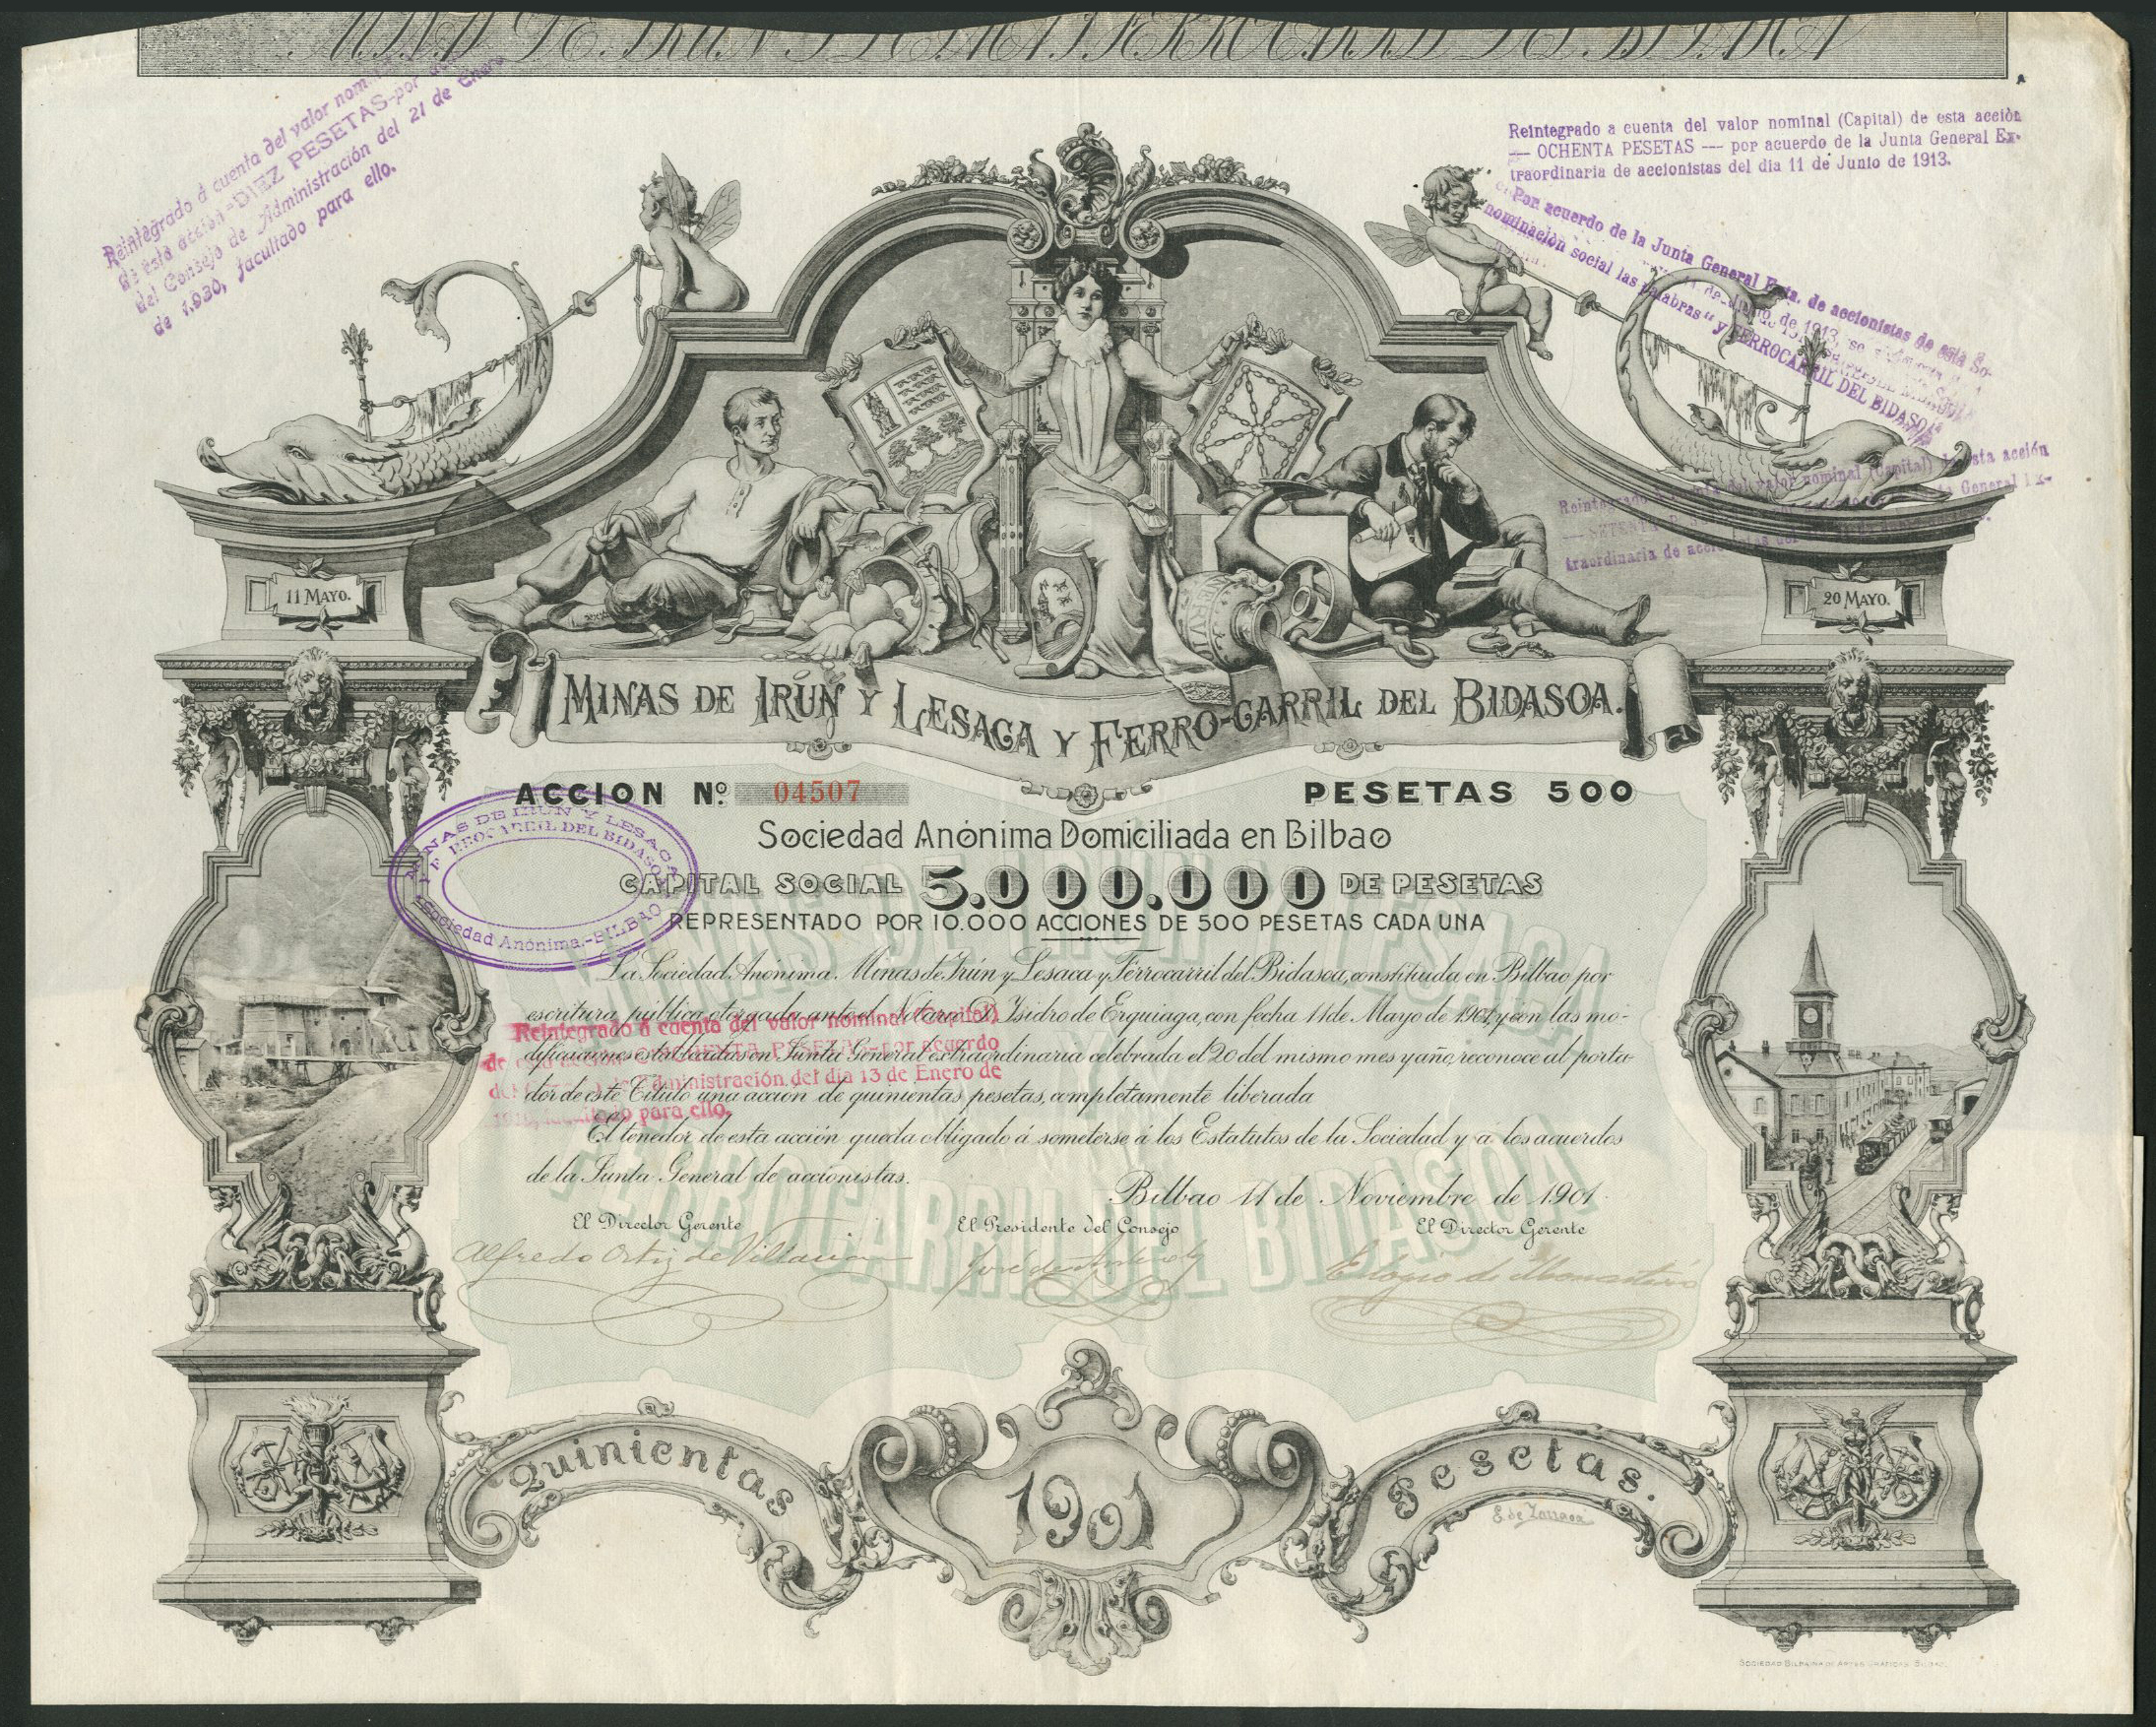 Reintegrado á cuenta del valor
de esta acción = DIEZ PESETAS-por
del Consejo de Administración del 21 de Enero
de 1.930, facultado para ello.
Reintegrado a cuenta del valor nominal (Capital) de esta acción
— OCHENTA PESETAS — por acuerdo de la Junta General Ex-
traordinaria de accionistas del dia 11 de Junio de 1913.
Por acuerdo de la Junta General Exta. de accionistas de esta So-
de 1913, se
nominación social las palabras " y FERROCARRIL DEL BIDASOA"
Reintegrado nominal (Capital) de esta acción
General Ex-
traordinaria de
11 MAYO.
20 MAYO.
MINAS DE IRÚN Y LESACA Y FERRO-CARRIL DEL BIDASOA.
ACCION Nº 04507
PESETAS 500
MINAS DE IRUN Y LESACA
Y FERROCARRIL DEL BIDASOA
Sociedad Anónima.-BILBAO
Sociedad Anónima Domiciliada en Bilbao
CAPITAL SOCIAL 5.000.000 DE PESETAS
REPRESENTADO POR 10.000 ACCIONES DE 500 PESETAS CADA UNA
La Sociedad Anónima. Minas de Irún y Lesaca y Ferrocarril del Bidasoa, constituida en Bilbao por
escritura pública otorgada ante el Notario D. Isidro de Erquiaga, con fecha 11 de Mayo de 1901, y con las mo-
dificaciones establecidas en Junta General extraordinaria celebrada el 20 del mismo mes y año, reconoce al porta-
dor de este Título una acción de quinientas pesetas, completamente liberada
El tenedor de esta acción queda obligado á someterse á los Estatutos de la Sociedad y á los acuerdos
de la Junta General de accionistas.
Reintegrado á cuenta del valor nominal (Capital)
de esta acción PESETAS-por acuerdo
del Administración del día 13 de Enero de
para ello.
Bilbao 11 de Noviembre de 1901.
El Director Gerente
El Presidente del Consejo
El Director Gerente
Alfredo Ortiz de
José de
de
MINAS DE IRÚN Y LESACA
Y
FERROCARRIL DEL BIDASOA.
Quinientas
1901
Pesetas.
SOCIEDAD BILBAINA DE ARTES GRAFICAS. BILBAO.